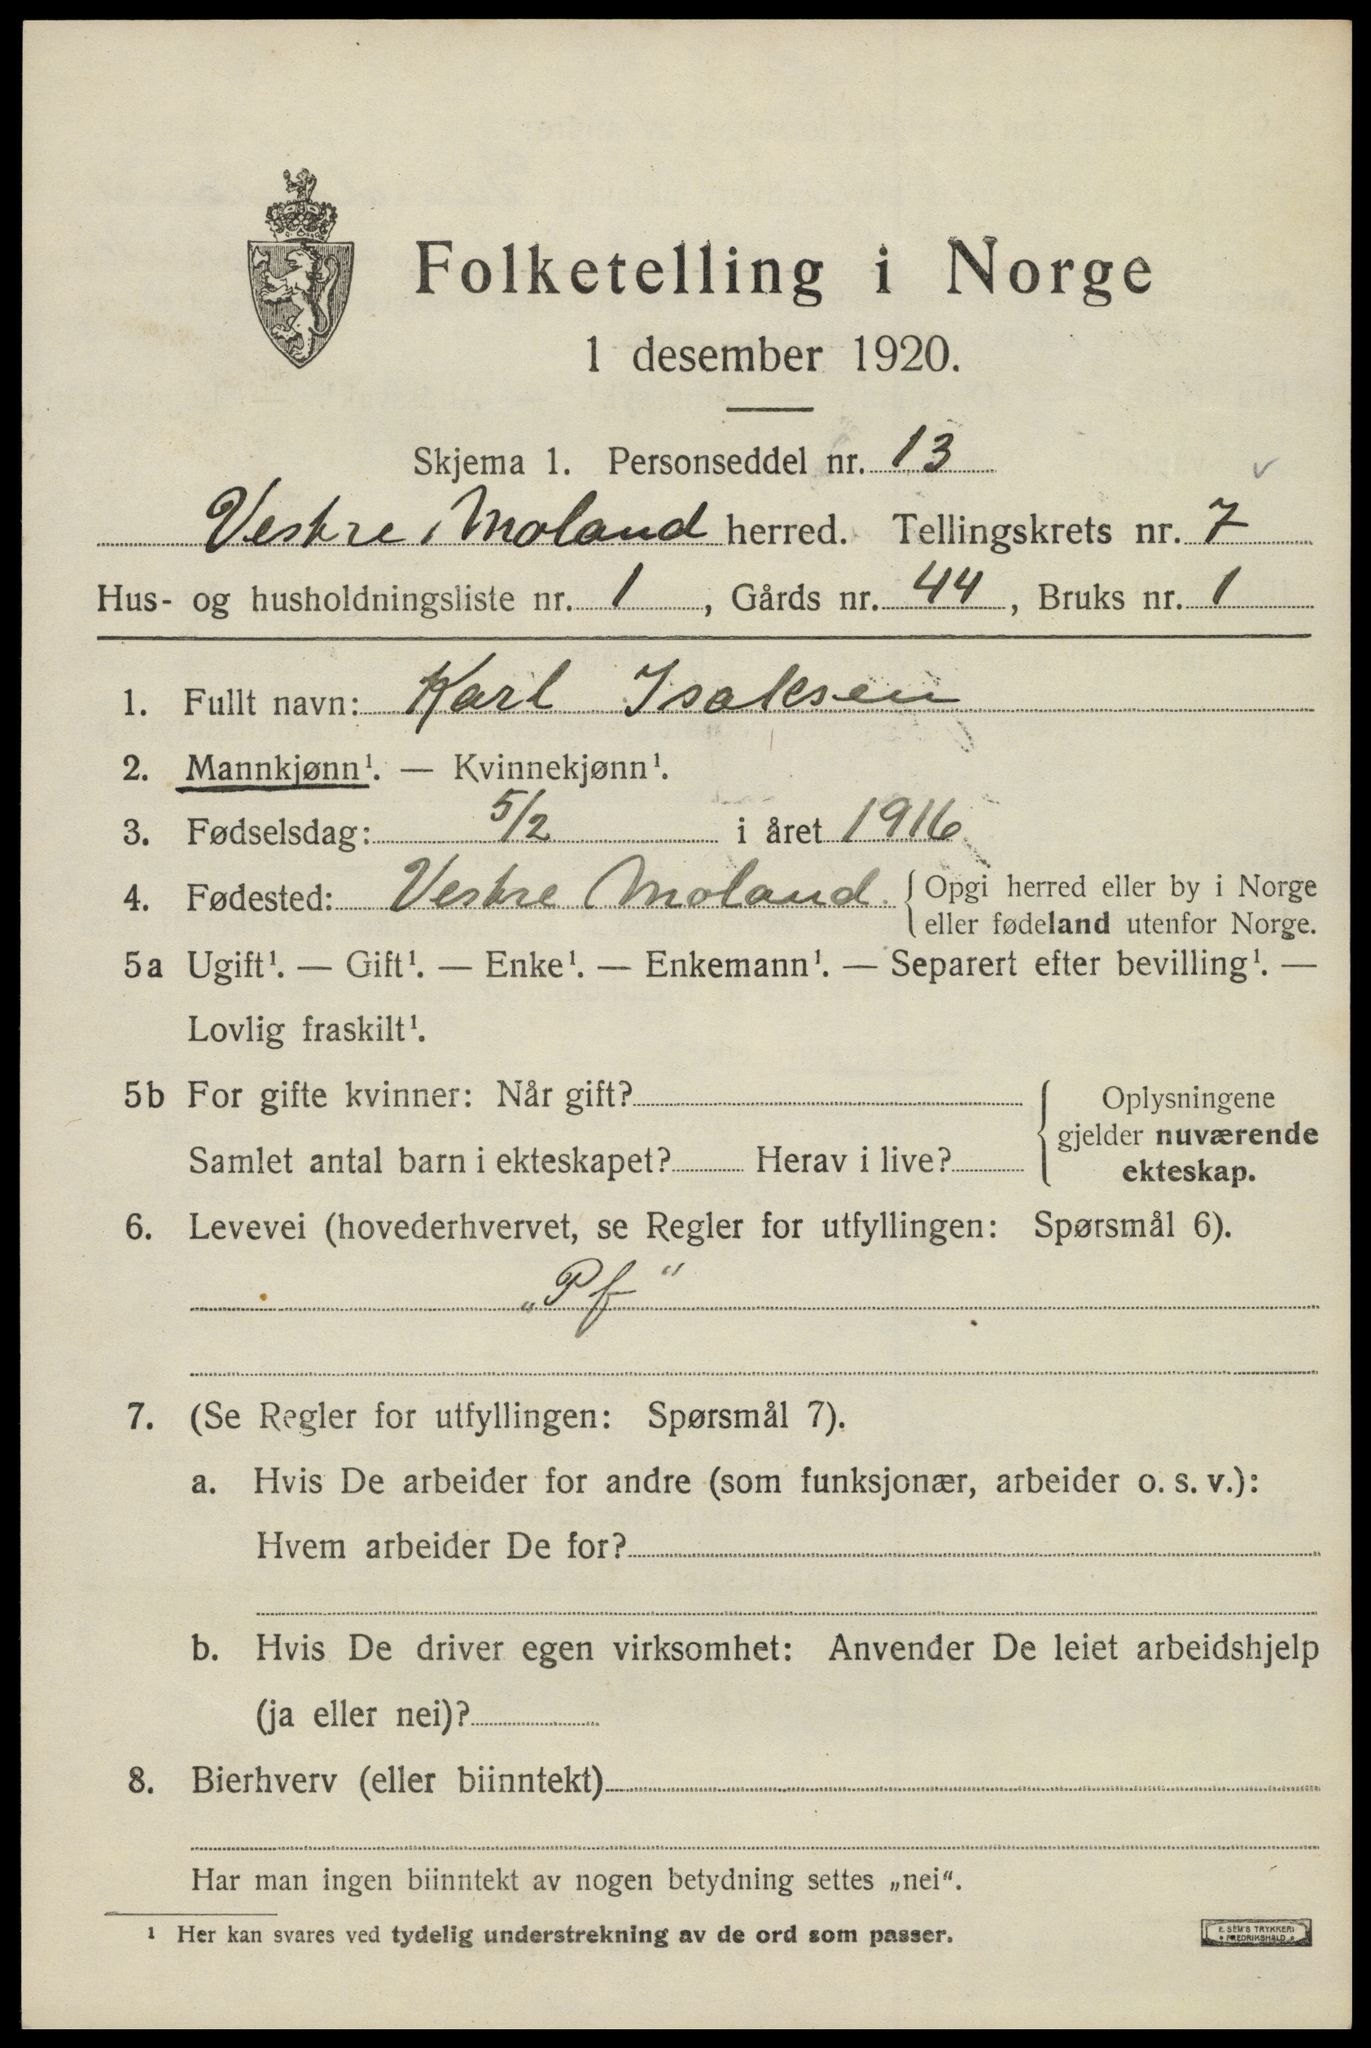 Folketelling i Norge
1 desember 1920.
Skjema 1. Personseddel nr. 13
Vestre Moland herred. Tellingskrets nr. 7
Hus- og husholdningsliste nr. 1, Gårds nr. 44, Bruks nr. 1
1. Fullt navn: Karl Isaksen
2. Mannkjønn¹. — Kvinnekjønn¹.
3. Fødselsdag: 5/2 i året 1916
4. Fødested: Vestre Moland. { Opgi herred eller by i Norge
eller fødeland utenfor Norge.
5a Ugift¹. — Gift¹. — Enke¹. — Enkemann¹. — Separert efter bevilling¹. —
Lovlig fraskilt¹.
5b For gifte kvinner: Når gift?
Samlet antal barn i ekteskapet? Herav i live?
{ Oplysningene
gjelder nuværende
ekteskap.
6. Levevei (hovederhvervet, se Regler for utfyllingen: Spørsmål 6).
„Pf“
7. (Se Regler for utfyllingen: Spørsmål 7).
a. Hvis De arbeider for andre (som funksjonær, arbeider o. s. v.):
Hvem arbeider De for?
b. Hvis De driver egen virksomhet: Anvender De leiet arbeidshjelp
(ja eller nei)?
8. Bierhverv (eller biinntekt)
Har man ingen biinntekt av nogen betydning settes „nei“.
¹ Her kan svares ved tydelig understrekning av de ord som passer.
E. SEM'S TRYKKERI
FREDRIKSHALD